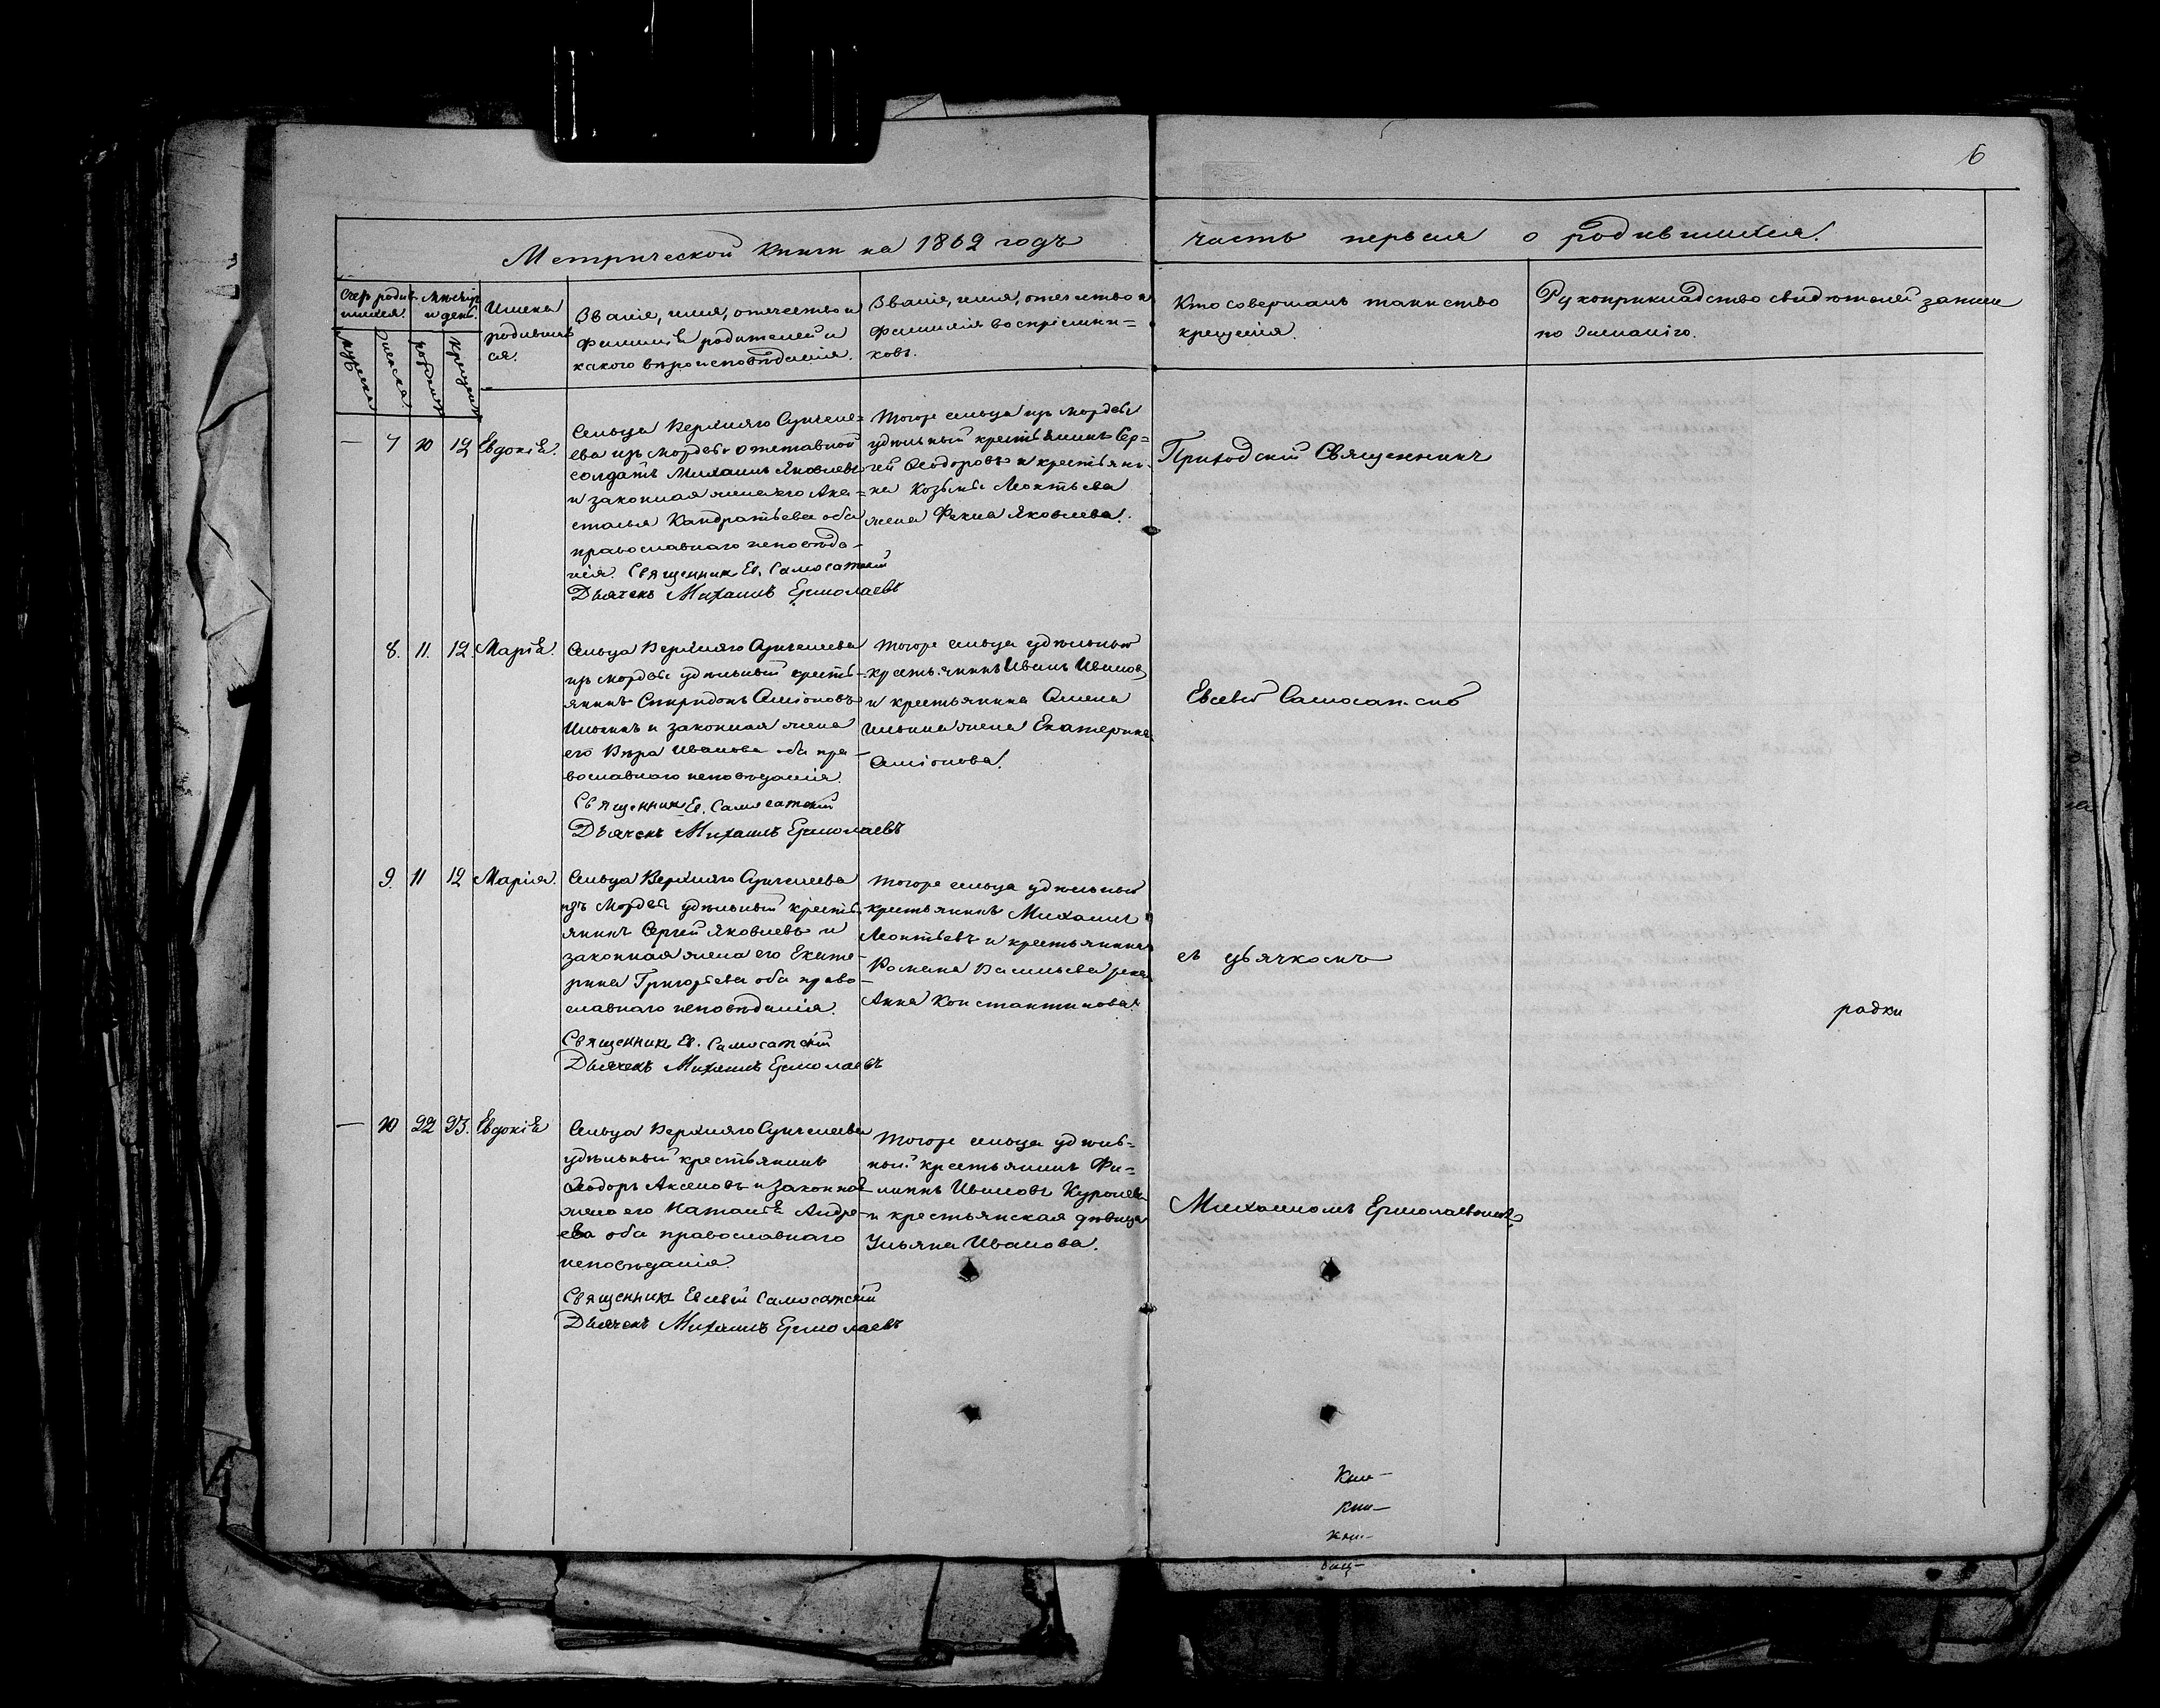 6
Метрической книги на 1862 годъ
часть первая о родившихся.
Счетъ родив-
шихся.
Мѣсяцъ
и день.
мужеска
женска
рожденія
крещенія
Имена
родивших
ся.
Званіе, имя, отечество и
фамилія родителей и
какого вѣроисповѣданія.
Званіе, имя, отечество и
фамилія воспріемни=
ковъ.
Кто совершалъ таинство
крещенія.
Рукоприкладство свидѣтелей записи
по желанію.
— 7 10 12 Евдокія.
Сельца Верхняго
изъ мордвы отставной
солдатъ Михаилъ Яковлевъ
и законная жена его Ана=
стасья Кандратьева оба
православнаго исповѣда-
нія. Священникъ Ев. Самосатскій
Дьячекъ Михаилъ Ермолаевъ
Тогоже сельца изъ мордвы
удѣльный крестьянинъ Сер=
гей Ѳеодоровъ и крестьяни-
на Козьмы Леонтьева
жена Фекла Яковлева.
Приходскій Священникъ
8. 11. 12. Марія.
Сельца Верхняго
изъ мордвы удѣльный кресть-
янинъ Спиридонъ Симіоновъ
Ильинъ и законная жена
его Вѣра Иванова оба пра-
вославнаго исповѣданія.
Священникъ Ев. Самосатскій
Дьячекъ Михаилъ Ермолаевъ
Тогоже сельца удѣльный
крестьянинъ Иванъ Ивановъ
и крестьянина
Ильина жена Екатерина
Симіонова.
Евсевій Самосатскій
9. 11 12 Марія.
Сельца Верхняго
изъ Мордвы удѣльный кресть-
янинъ Сергей Яковлевъ и
законная жена его Екате-
рина Григорьева оба право-
славнаго исповѣданія.
Священникъ Ев. Самосатскій
Дьячекъ Михаилъ Ермолаевъ
Тогоже сельца удѣльный
крестьянинъ Михаилъ
Леонтьевъ и крестьянина
Романа Васильева жена
Анна Константинова.
съ дьячкомъ
радки
— 10 22 23. Евдокія
Сельца Верхняго
удѣльный крестьянинъ
Ѳеодоръ Аксеновъ и законная
жена его Наталія Андре-
ева оба православнаго
исповѣданія.
Священникъ Евсевій Самосатскій
Дьячекъ Михаилъ Ермолаевъ
Тогоже сельца удѣль-
ный крестьянинъ Фи-
липпъ Ивановъ
и крестьянская дѣвица
Ульяна Иванова.
Михаиломъ Ермолаевымъ
Кни-
кни-
кни-